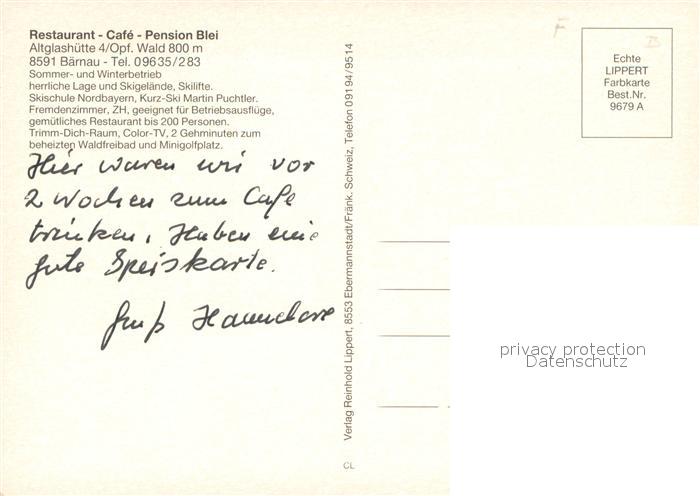 Restaurant - Café - Pension Blei
Altglashütte 4/Opf. Wald 800 m
8591 Bärnau - Tel. 09635/283
Sommer- und Winterbetrieb
herrliche Lage und Skigelände, Skilifte.
Skischule Nordbayern, Kurz-Ski Martin Puchtler.
Fremdenzimmer, ZH, geeignet für Betriebsausflüge,
gemütliches Restaurant bis 200 Personen.
Trimm-Dich-Raum, Color-TV, 2 Gehminuten zum
beheizten Waldfreibad und Minigolfplatz.
Hier waren wir vor
2 Wochen zum Cafe
trinken. Haben eine
gute Speiskarte.
Gruß Hannelore
Verlag Reinhold Lippert, 8553 Ebermannstadt/Fränk. Schweiz, Telefon 09194/9514
CL
F
B
Echte
LIPPERT
Farbkarte
Best.Nr.
9679 A
privacy protection
Datenschutz